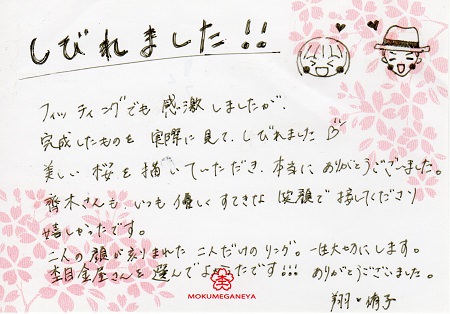 しびれました!!
フィッティングでも感激しましたが、
完成したものを実際に見て、しびれました
美しい桜を描いていただき、本当にありがとうございました。
齊木さんも、いつも優しくすてきな笑顔で接してくださり
嬉しかったです。
二人の顔が刻りまれた二人だけのリング。一生大切にします。
杢目金屋さんを選んでよかったです!!! ありがとうございました。
MOKUMEGANEYA
翔・
子